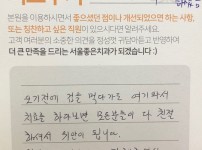 본원을 이용하시면서 좋으셨던 점이나 개선되었으면 하는 사항,
또는 칭찬하고 싶은 직원이 있으시다면 알려주세요.
고객 여러분의 소중한 의견을 정성껏 귀담아듣고 반영하여
더 큰 만족을 드리는 서울좋은치과가 되겠습니다 :)
소개전에 겁을 먹다가도 여기와서
치료를 하다보면 모든분들이 다 친절
하셔서 위안이 됩니다.